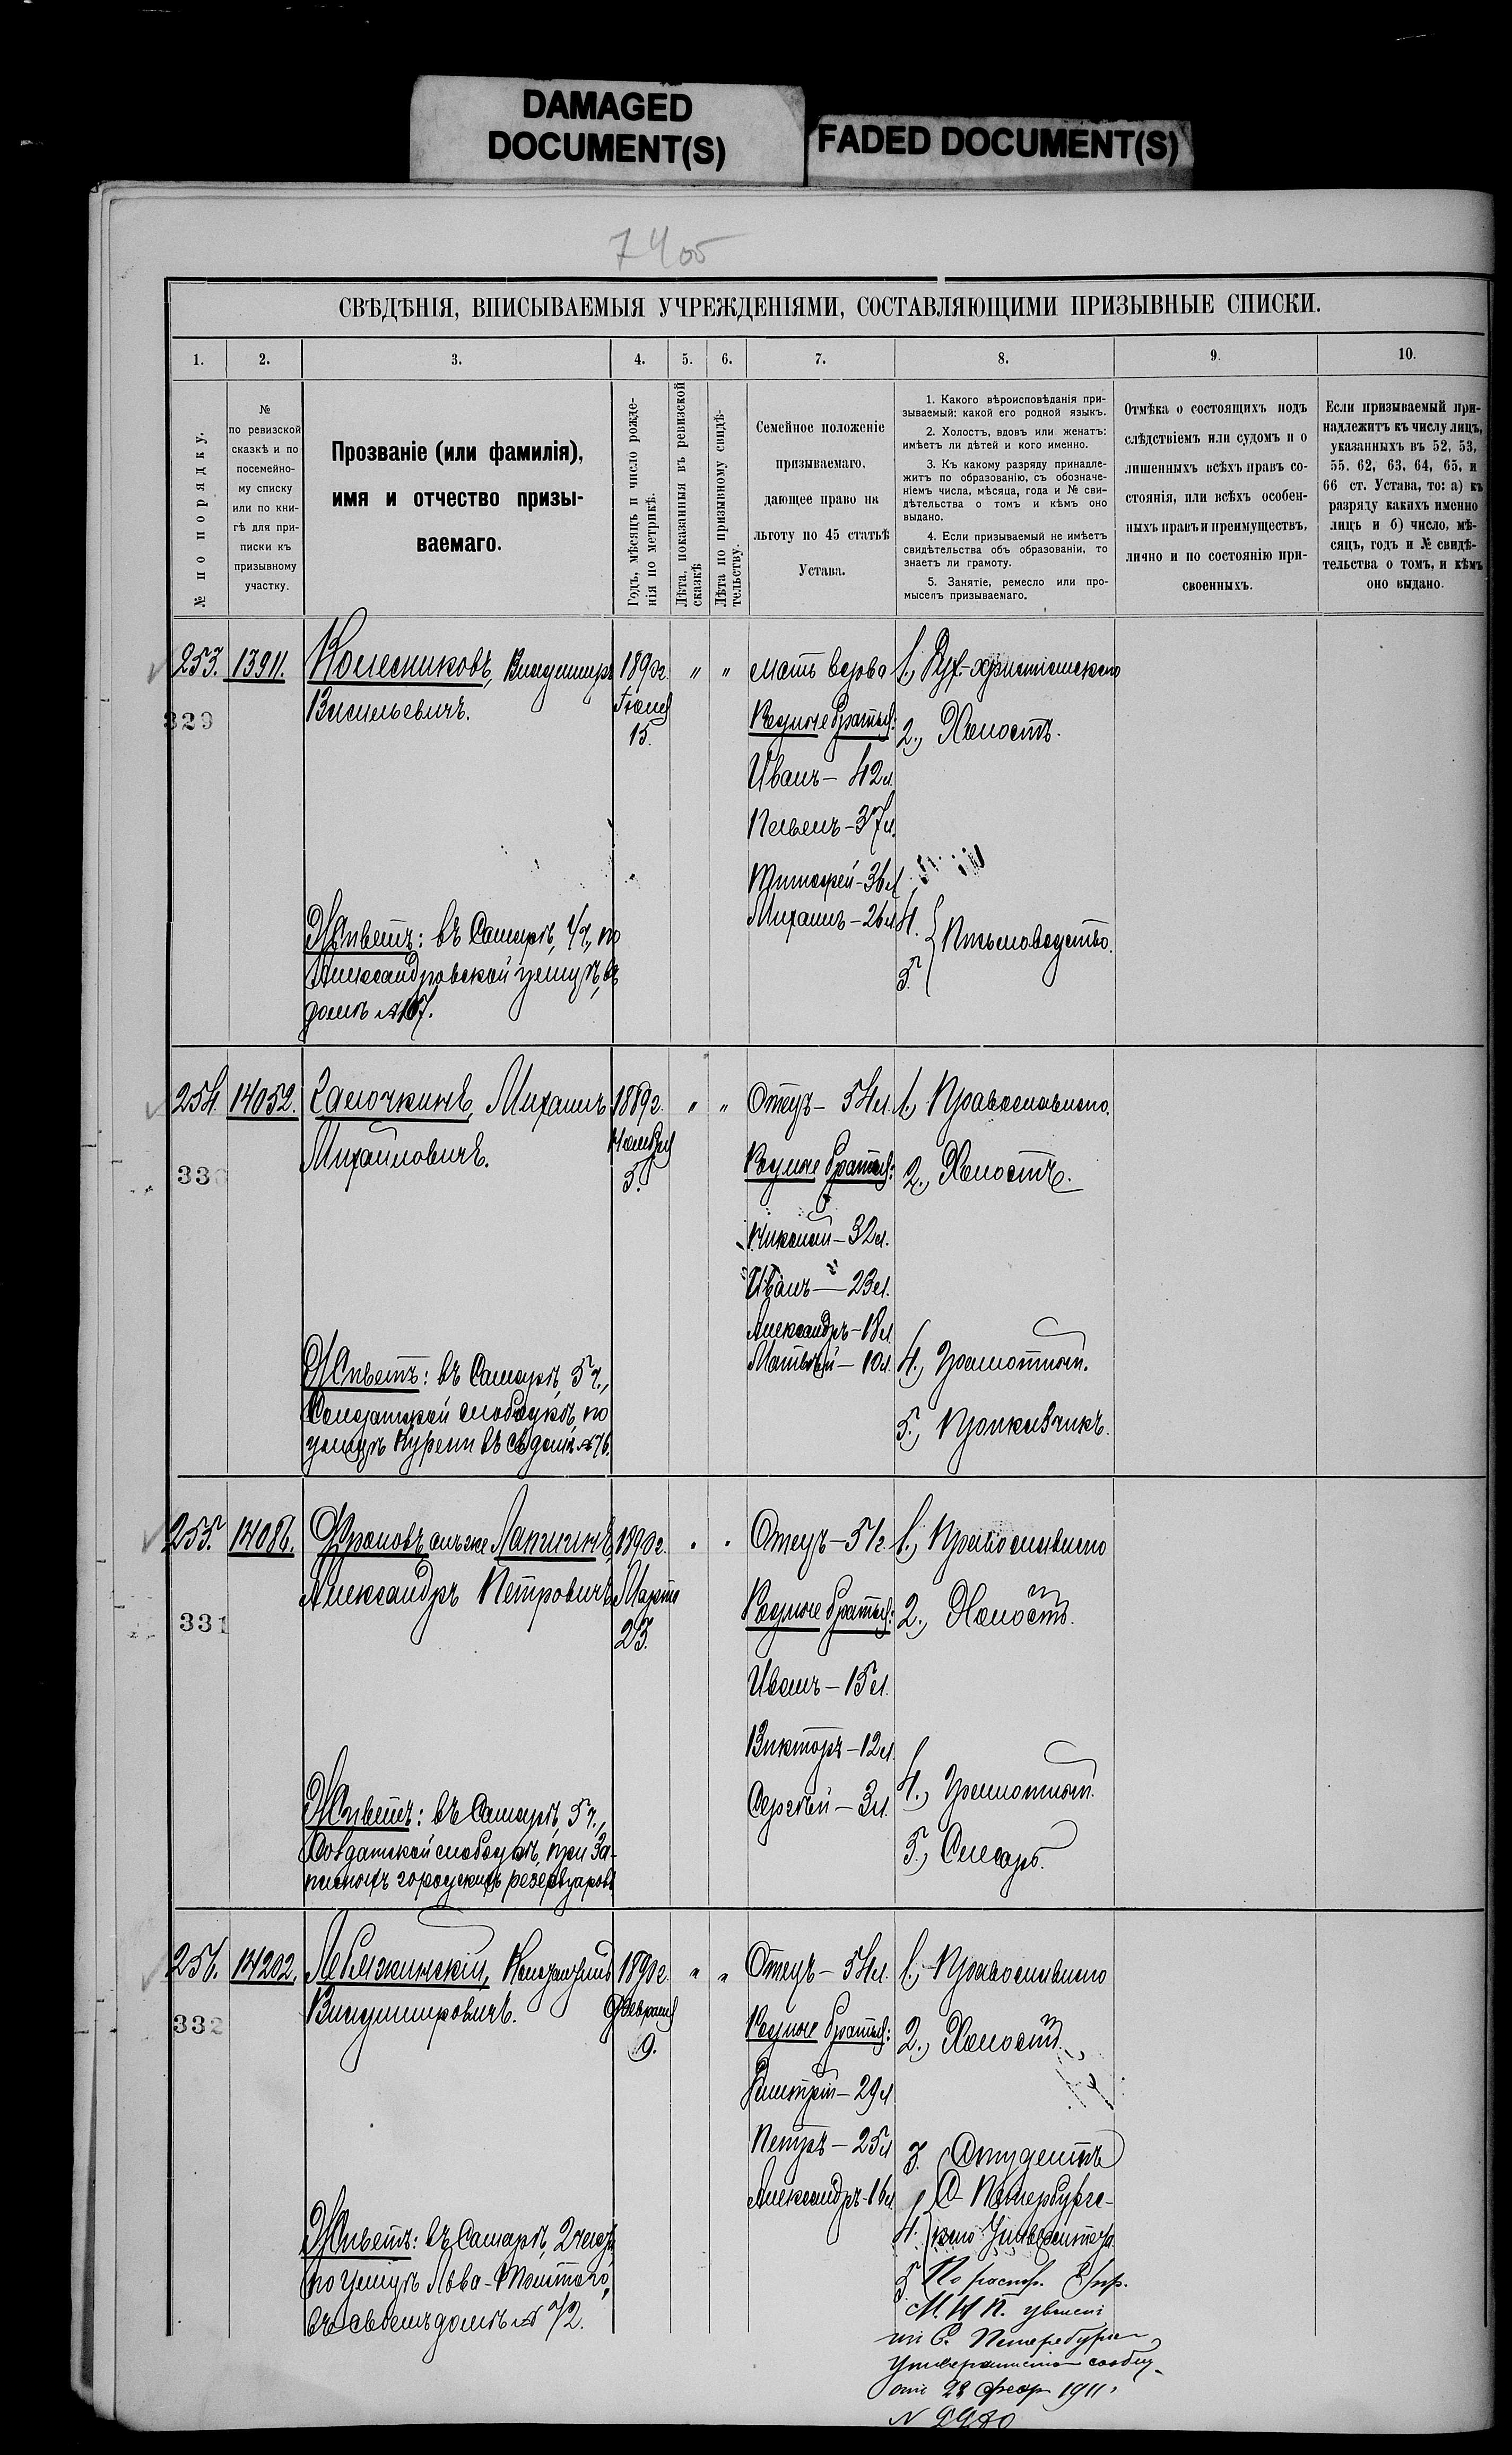 DAMAGED
DOCUMENT(S)
FADED DOCUMENT(S)
СВѢДѢНІЯ, ВПИСЫВАЕМЫЯ УЧРЕЖДЕНІЯМИ, СОСТАВЛЯЮЩИМИ ПРИЗЫВНЫЕ СПИСКИ.
1. 2. 3. 4. 5. 6. 7. 8. 9. 10.
№ по порядку.
№
по ревизской
сказкѣ и по
посемейно-
му списку
или по кни-
гѣ для при-
писки къ
призывному
участку.
Прозваніе (или фамилія),
имя и отчество призы-
ваемаго.
Годъ, мѣсяцъ и число рожде-
нія по метрикѣ.
Лѣта, показанныя въ ревизской
сказкѣ
Лѣта по призывному свидѣ-
тельству.
Семейное положеніе
призываемаго,
дающее право на
льготу по 45 статьѣ
Устава.
1. Какого вѣроисповѣданія при-
зываемый: какой его родной языкъ.
2. Холостъ, вдовъ или женатъ:
имѣетъ ли дѣтей и кого именно.
3. Къ какому разряду принадле-
житъ по образованію, съ обозначе-
ніемъ числа, мѣсяца, года и № сви-
дѣтельства о томъ и кѣмъ оно
выдано.
4. Если призываемый не имѣетъ
свидѣтельства объ образованіи, то
знаетъ ли грамоту.
5. Занятіе, ремесло или про-
мыселъ призываемаго.
Отмѣка о состоящихъ подъ
слѣдствіемъ или судомъ и о
лишенныхъ всѣхъ правъ со-
стоянія, или всѣхъ особен-
ныхъ правъ и преимуществъ,
лично и по состоянію при-
своенныхъ.
Если призываемый при-
надлежитъ къ числу лицъ,
указанныхъ въ 52, 53,
55. 62, 63, 64, 65, и
66 ст. Устава, то: а) къ
разряду какихъ именно
лицъ и б) число, мѣ-
сяцъ, годъ и № свидѣ-
тельства о томъ, и кѣмъ
оно выдано.
253. 13911. Колесниковъ, Владиміръ
Васильевичъ.
329
1890г.
Іюля
15.
" "
Мать вдова
Родные братья:
Иванъ - 42 л.
Павелъ - 37 л.
Тимофей - 36 л.
Михаилъ - 26 л.
1.,
2., Холостъ.
4.
5. Письмоводство.
Живетъ: въ Самарѣ, 4 ч., по
Александровской улицѣ, въ
домѣ № 107.
254. 14052. Салочкинъ, Михаилъ
Михайловичъ.
330
1889г.
Ноября
5.
" "
Отецъ - 54 л.
Родные братья:
Николай - 32 л.
Иванъ - 23 л.
Александръ - 18 л.
Матвѣй - 10 л.
1., Православнаго.
2., Холостъ.
4., Грамотный.
5., Прикащикъ.
Живетъ: въ Самарѣ, 5 ч.,
Солдатской слободкѣ, по
улицѣ въ св. домѣ № 76.
255. 14086. Фроловъ онъ же Лапшинъ,
Александръ Петровичъ
331
1890г.
Марта
23.
" "
Отецъ - 51 г.
Родные братья:
Иванъ - 15 л.
Викторъ - 12 л.
Сергѣй - 3 л.
1., Православнаго
2., Холостъ.
4., Грамотный.
5., Слесарь.
Живетъ: въ Самарѣ, 5 ч.,
Солдатской слободкѣ, при За-
пасныхъ городскихъ резервуаровъ
256. 14202. Лебяжинскій, Константинъ
Владиміровичъ.
332
1890г.
Февраля
9.
" "
Отецъ - 54 л.
Родные братья:
Дмитрій - 29 л.
Петръ - 25 л.
Александръ - 16 л.
1., Православнаго
2., Холостъ.
3. Студентъ
С-Петербургс-
4. каго Университета.
5 По распор.
М. Н. П. уволенъ
изъ С. Петербургск.
Университета сообщ-
еніе 28 февр 1911,
Живетъ: въ Самарѣ, 2 части
по улицѣ Льва-Толстого,
въ своемъ домѣ № 72.